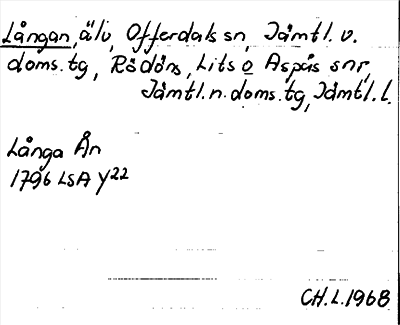 Långan, älv, Offerdals sn, Jämtl. v.
doms. tg, Rödöns, Lits o Aspås snr,
Jämtl. n. doms. tg, Jämtl. l.
Långa Ån
1796 LSA Y22
CH. L. 1968